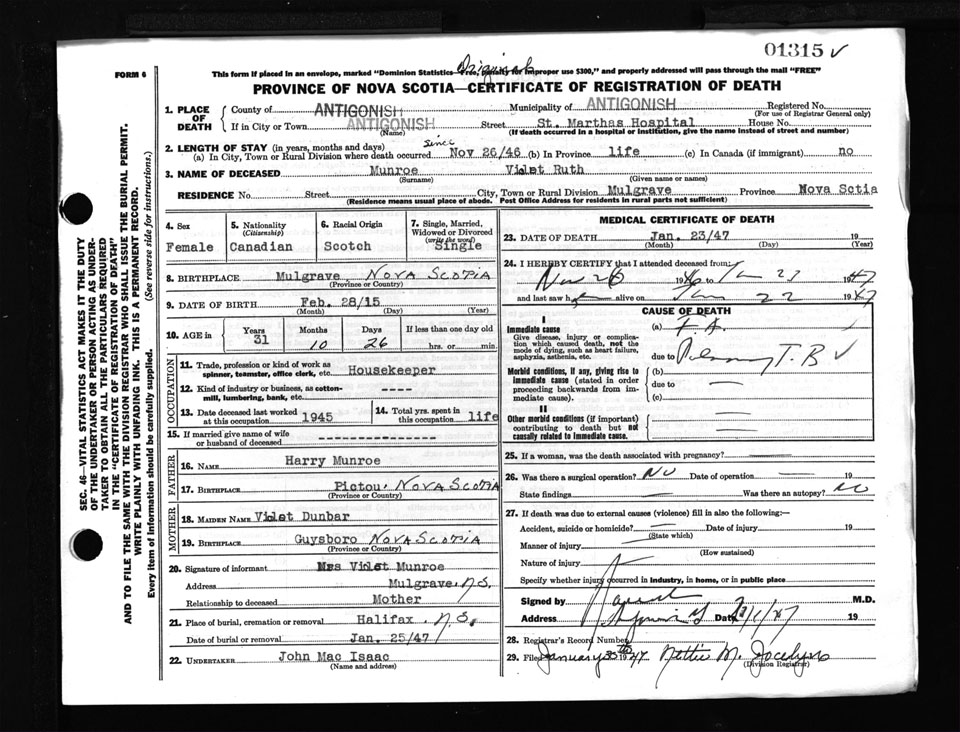 01315 ✓
FORM 6
Original
This form if placed in an envelope, marked "Dominion Statistics—Free, Penalty for improper use $300," and properly addressed will pass through the mail "FREE"
PROVINCE OF NOVA SCOTIA—CERTIFICATE OF REGISTRATION OF DEATH
SEC. 46—VITAL STATISTICS ACT MAKES IT THE DUTY
OF THE UNDERTAKER OR PERSON ACTING AS UNDER-
TAKER TO OBTAIN ALL THE PARTICULARS REQUIRED
IN THE "CERTIFICATE OF REGISTRATION OF DEATH"
AND TO FILE THE SAME WITH THE DIVISION REGISTRAR WHO SHALL ISSUE THE BURIAL PERMIT.
WRITE PLAINLY WITH UNFADING INK. THIS IS A PERMANENT RECORD.
Every item of Information should be carefully supplied. (See reverse side for instructions.)
1. PLACE OF DEATH County of ANTIGONISH Municipality of ANTIGONISH Registered No.
(For use of Registrar General only)
If in City or Town ANTIGONISH Street St. Marthas Hospital House No.
(Name) (If death occurred in a hospital or institution, give the name instead of street and number)
2. LENGTH OF STAY (in years, months and days)
(a) In City, Town or Rural Division where death occurred since Nov 26/46 (b) In Province life (c) In Canada (if immigrant) no
3. NAME OF DECEASED Munroe Violet Ruth
(Surname) (Given name or names)
RESIDENCE No. Street City, Town or Rural Division Mulgrave Province Nova Sctia
(Residence means usual place of abode. Post Office Address for residents in rural parts not sufficient)
4. Sex Female
5. Nationality (Citizenship) Canadian
6. Racial Origin Scotch
7. Single, Married, Widowed or Divorced (write the word) Single
8. BIRTHPLACE Mulgrave NOVA SCOTIA
(Province or Country)
9. DATE OF BIRTH Feb. 28/15
(Month) (Day) (Year)
10. AGE in Years 31 Months 10 Days 26 If less than one day old hrs. or min.
OCCUPATION
11. Trade, profession or kind of work as spinner, teamster, office clerk, etc. Housekeeper
12. Kind of industry or business, as cotton-mill, lumbering, bank, etc. ----
13. Date deceased last worked at this occupation 1945
14. Total yrs. spent in this occupation life
15. If married give name of wife or husband of deceased ---------------
FATHER
16. NAME Harry Munroe
17. BIRTHPLACE Pictou, NOVA SCOTIA
(Province or Country)
MOTHER
18. MAIDEN NAME Violet Dunbar
19. BIRTHPLACE Guysboro NOVA SCOTIA
(Province or Country)
20. Signature of informant Mrs Violet Munroe
Address Mulgrave, N.S.
Relationship to deceased Mother
21. Place of burial, cremation or removal Halifax, N.S.
Date of burial or removal Jan. 25/47
22. UNDERTAKER John Mac Isaac
(Name and address)
MEDICAL CERTIFICATE OF DEATH
23. DATE OF DEATH Jan. 23/47 19
(Month) (Day) (Year)
24. I HEREBY CERTIFY that I attended deceased from:
Nov 26 1946 to Jan 23 1947
and last saw her alive on Jan 22 1947
CAUSE OF DEATH
I
Immediate cause (a)
Give disease, injury or complication which caused death, not the mode of dying, such as heart failure, asphyxia, asthenia, etc.
due to Pulmonary T.B ✓
Morbid conditions, if any, giving rise to immediate cause (stated in order proceeding backwards from immediate cause).
(b) —
due to —
(c)
II
Other morbid conditions (if important) contributing to death but not causally related to immediate cause.
25. If a woman, was the death associated with pregnancy? —
26. Was there a surgical operation? No Date of operation — 19
State findings — Was there an autopsy? no
27. If death was due to external causes (violence) fill in also the following:—
Accident, suicide or homicide? — Date of injury 19
(State which)
Manner of injury
(How sustained)
Nature of injury
Specify whether injury occurred in industry, in home, or in public place
Signed by M.D.
Address Date 19
28. Registrar's Record Number
29. Filed January 30th 1947 Nettie M. Jocelyn
(Division Registrar)